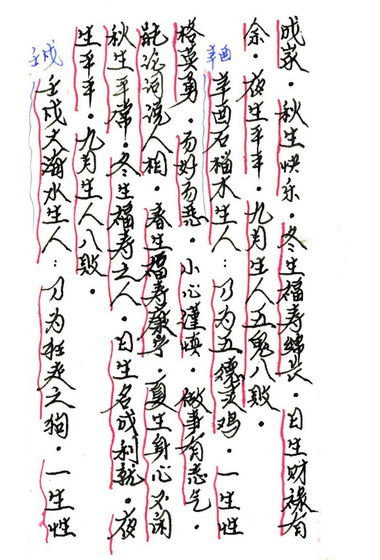 成家。秋生快乐。冬生福寿绵长。日生财禄有
余。夜生平平。九月生人五鬼八败。
辛酉
辛酉石榴木生人：乃为五德灵鸡。一生性
格英勇。好恶。小心谨慎。做事有志气。
能词说人相。春生福寿康宁。夏生身心不闲
秋生平常。冬生福寿之人。日生名成利就。夜
生平平。九月生人八败。
壬戌
壬戌大海水生人：乃为狂夫之狗。一生性